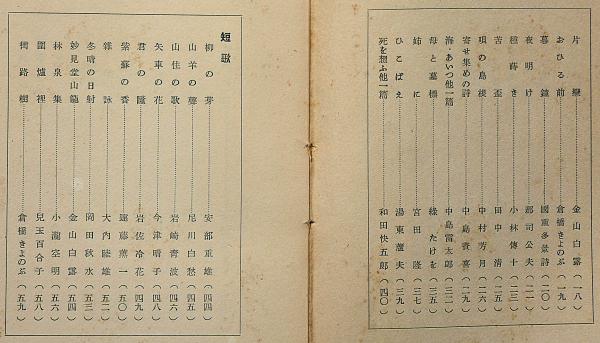 片戀 金山白露 (一八)
おひる前 倉橋きよのぶ (一九)
暮鐘 國重多景詩 (二〇)
夜明け 郡司公夫 (二一)
種蒔き 小林傳十 (二三)
苦盃 田中清 (二五)
唄の島後 中村芳月 (二六)
寄せ集めの詩 中島貴喜 (二九)
海・あいつ他一篇 中島富太郎 (三二)
母と墓標 綠たけを (三五)
姉に 宮田隆 (三七)
ひこばえ 湯東蘆夫 (三九)
死を想ふ他一篇 和田快五郎 (四〇)
短歌
柳の芽 安部重雄 (四四)
山羊の鬚 尼川白愁 (四五)
山住の歌 岩崎靑波 (四六)
矢車の花 今津晴子 (四八)
君の瞳 岩佐冷花 (四九)
紫蘇の香 遠藤薫一 (五〇)
雜詠 大內隆雄 (五二)
冬晴の日射 岡田秋水 (五三)
妙見堂山籠 金山白露 (五四)
林泉集 小瀧空明 (五六)
圍爐裡 兒玉百合子 (五八)
街路樹 倉橋きよのぶ (五九)